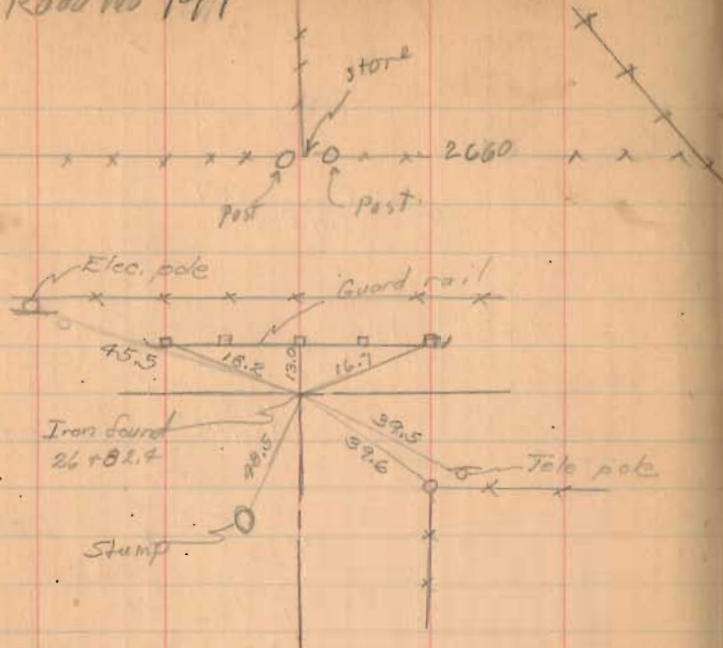 Road No 191
store
2660
Post
Post
Elec. pole
Guard rail
45.5
18.2
13.0
16.7
Iron found
26+82.4
39.5
39.6
Tele pole
Stump